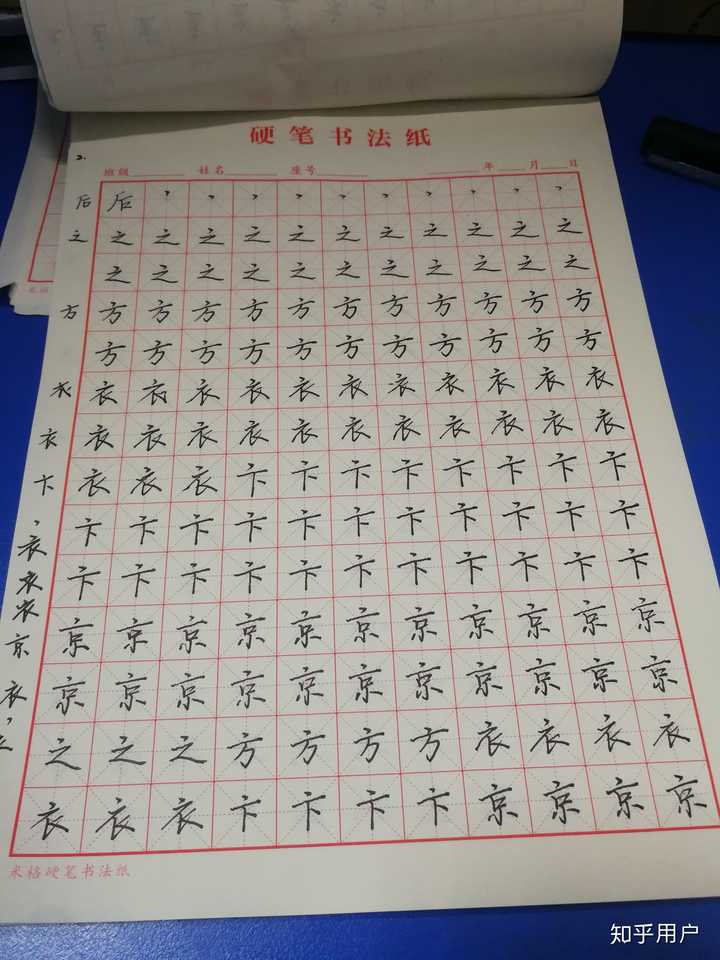 硬笔书法纸
2.
班级 姓名 座号 年 月 日
后 后 、 、 、 、 、 、 、 、 、 、
之 之 之 之 之 之 之 之 之 之 之 之
之 之 之 之 之 之 之 之 之 之 之
方 方 方 方 方 方 方 方 方 方 方 方
方 方 方 方 方 方 方 方 方 方 方
衣 衣 衣 衣 衣 衣 衣 衣 衣 衣 衣 衣
衣 衣 衣 衣 衣 衣 衣 衣 衣 衣 衣 衣
卞 衣 衣 衣 卞 卞 卞 卞 卞 卞 卞 卞
、 卞 卞 卞 卞 卞 卞 卞 卞 卞 卞 卞
衣 卞 卞 卞 卞 卞 卞 卞 卞 卞 卞 卞
衣
衣
京 京 京 京 京 京 京 京 京 京 京 京
衣 京 京 京 京 京 京 京 京 京 京 京
、
之 之 之 之 方 方 方 方 衣 衣 衣 衣
衣 衣 衣 卞 卞 卞 卞 京 京 京 京
米格硬笔书法纸
知乎用户